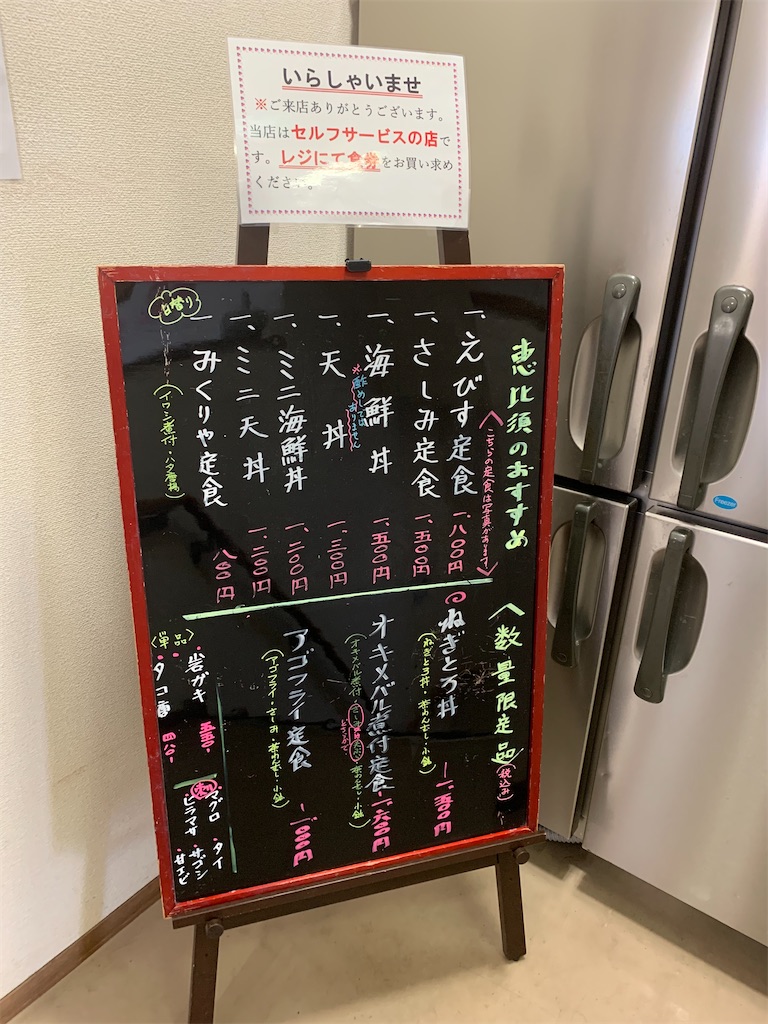 いらしゃいませ
※ご来店ありがとうございます。
当店はセルフサービスの店で
す。レジにて食券をお買い求め
ください。
恵比須のおすすめ
〈こちらの定食は写真があります〉
一、えびす定食 一、八〇〇円
一、さしみ定食 一、五〇〇円
一、海鮮丼 一、五〇〇円
※酢めしではありません
一、天丼 一、三〇〇円
一、ミニ海鮮丼 一、二〇〇円
一、ミニ天丼 一、二〇〇円
日替り
一、みくりや定食 八〇〇円
(イワシ煮付・ハタ唐揚)
〈数量限定品〉(税込み)
ねぎとろ丼 一、五〇〇円
(ねぎとろ丼・茶わんむし・小鉢)
オキメバル煮付定食 一、六〇〇円
(オキメバル煮付・茶わんむし・小鉢)
どちらかで
アゴフライ定食 一、〇〇〇円
(アゴフライ・さしみ・茶わんむし・小鉢)
〈単品〉
・岩ガキ 五五〇-
・タコ 四八〇-
マグロ・タイ
ヒラマサ・サゴシ
甘エビ
Freezer